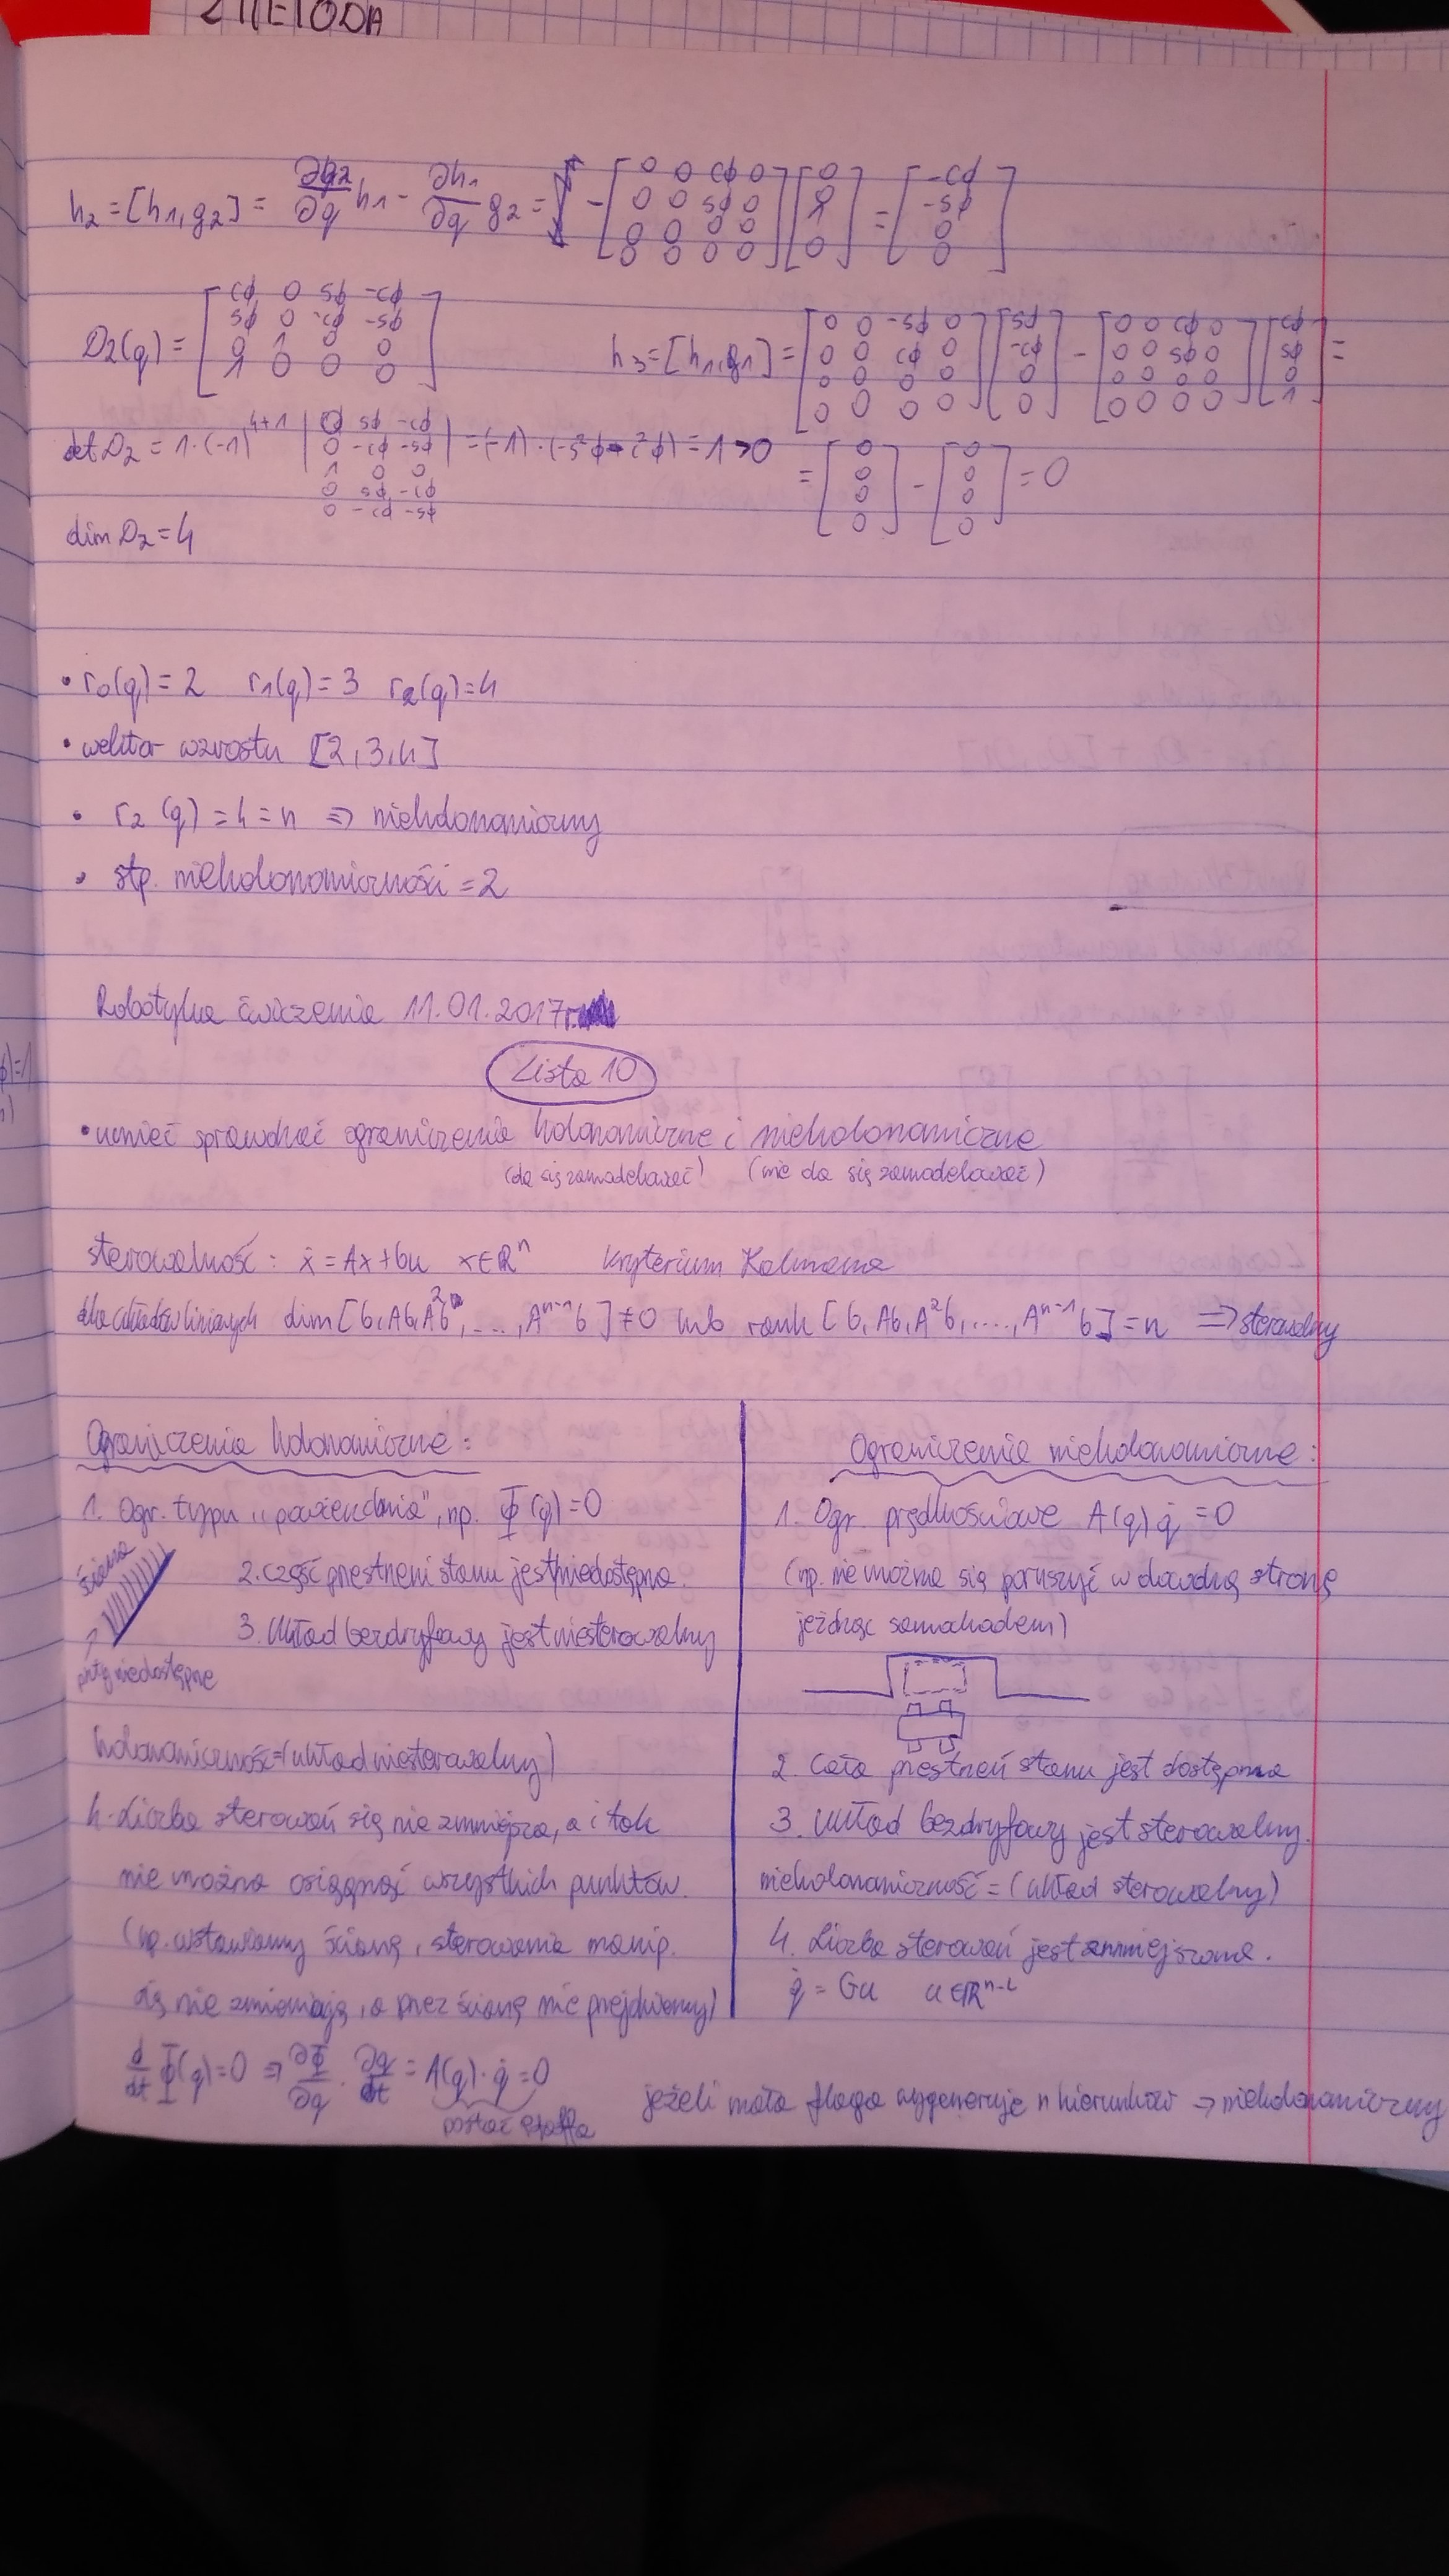 2 METODA
h₂ = [h₁, g₂] = ∂g₂/∂q h₁ - ∂h₁/∂q g₂ = - [0 0 cφ 0; 0 0 sφ 0; 0 0 0 0; 0 0 0 0] [0; 0; 1; 0] = [-cφ; -sφ; 0; 0]
D₂(q) = [cφ 0 sφ -cφ; sφ 0 -cφ -sφ; 0 1 0 0; 1 0 0 0]
h₃ = [h₁, g₁] = [0 0 -sφ 0; 0 0 cφ 0; 0 0 0 0; 0 0 0 0] [sφ; -cφ; 0; 0] - [0 0 cφ 0; 0 0 sφ 0; 0 0 0 0; 0 0 0 0] [cφ; sφ; 0; 1] =
= [0; 0; 0; 0] - [0; 0; 0; 0] = 0
det D₂ = 1·(-1)⁴⁺¹ |0 sφ -cφ; 0 -cφ -sφ; 1 0 0| = (-1)·(-s²φ-c²φ) = 1 > 0
0 sφ -cφ
0 -cφ -sφ
dim D₂ = 4
• r₀(q) = 2 r₁(q) = 3 r₂(q) = 4
• wektor wzrostu [2,3,4]
• r₂(q) = 4 = n ⇒ nieholonomiczny
• stp. nieholonomiczności = 2
Robotyka ćwiczenia 11.01.2017r.
Lista 10
• umieć sprawdzać ograniczenia holonomiczne i nieholonomiczne
(da się zamodelować) (nie da się zamodelować)
sterowalność: ẋ = Ax + bu x∈Rⁿ kryterium Kalmana
dla układów liniowych dim [b, Ab, A²b, ..., Aⁿ⁻¹b] ≠ 0 lub rank [b, Ab, A²b, ...., Aⁿ⁻¹b] = n ⇒ sterowalny
Ograniczenia holonomiczne:
1. Ogr. typu „położenia”, np. Φ(q) = 0
ściana
2. część przestrzeni stanu jest niedostępna.
3. Układ bezdryfowy jest niesterowalny
niedostępne
holonomiczność = (układ niesterowalny)
4. Liczba sterowań się nie zmniejsza, a i tak
nie można osiągnąć wszystkich punktów.
(np. wstawiamy ścianę, sterowania manip.
się nie zmieniają, a przez ścianę nie przejdziemy)
d/dt Φ(q) = 0 ⇒ ∂Φ/∂q · ∂q/dt = A(q)·q̇ = 0
postać Pfaffa
Ograniczenia nieholonomiczne:
1. Ogr. prędkościowe A(q) q̇ = 0
(np. nie można się poruszyć w dowolną stronę
jeżdżąc samochodem)
2. Cała przestrzeń stanu jest dostępna
3. Układ bezdryfowy jest sterowalny.
nieholonomiczność = (układ sterowalny)
4. Liczba sterowań jest zmniejszona.
q̇ = Gu u∈Rⁿ⁻ˡ
jeżeli mała flaga wygeneruje n kierunków → nieholonomiczny